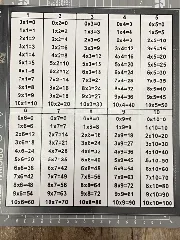 1 2 3 4 5
0x1=0 0x2=0 0x3=0 0x4=0 0x5=0
1x1=1 1x2=2 1x3=3 1x4=4 1x5=5
2x1=2 2x2=4 2x3=6 2x4=8 2x5=10
3x1=3 3x2=6 3x3=9 3x4=12 3x5=15
4x1=4 4x2=8 4x3=12 4x4=16 4x5=20
5x1=5 5x2=10 5x3=15 5x4=20 5x5=25
6x1=6 6x2=12 6x3=18 6x4=24 6x5=30
7x1=7 7x2=14 7x3=21 7x4=28 7x5=35
8x1=8 8x2=16 8x3=24 8x4=32 8x5=40
9x1=9 9x2=18 9x3=27 9x4=36 9x5=45
10x1=10 10x2=20 10x3=30 10x4=40 10x5=50
6 7 8 9 10
0x6=0 0x7=0 0x8=0 0x9=0 0x10=0
1x6=6 1x7=7 1x8=8 1x9=9 1x10=10
2x6=12 2x7=14 2x8=16 2x9=18 2x10=20
3x6=18 3x7=21 3x8=24 3x9=27 3x10=30
4x6=24 4x7=28 4x8=32 4x9=36 4x10=40
5x6=30 5x7=35 5x8=40 5x9=45 5x10=50
6x6=36 6x7=42 6x8=48 6x9=54 6x10=60
7x6=42 7x7=49 7x8=56 7x9=63 7x10=70
8x6=48 8x7=56 8x8=64 8x9=72 8x10=80
9x6=54 9x7=63 9x8=72 9x9=81 9x10=90
10x6=60 10x7=70 10x8=80 10x9=90 10x10=100